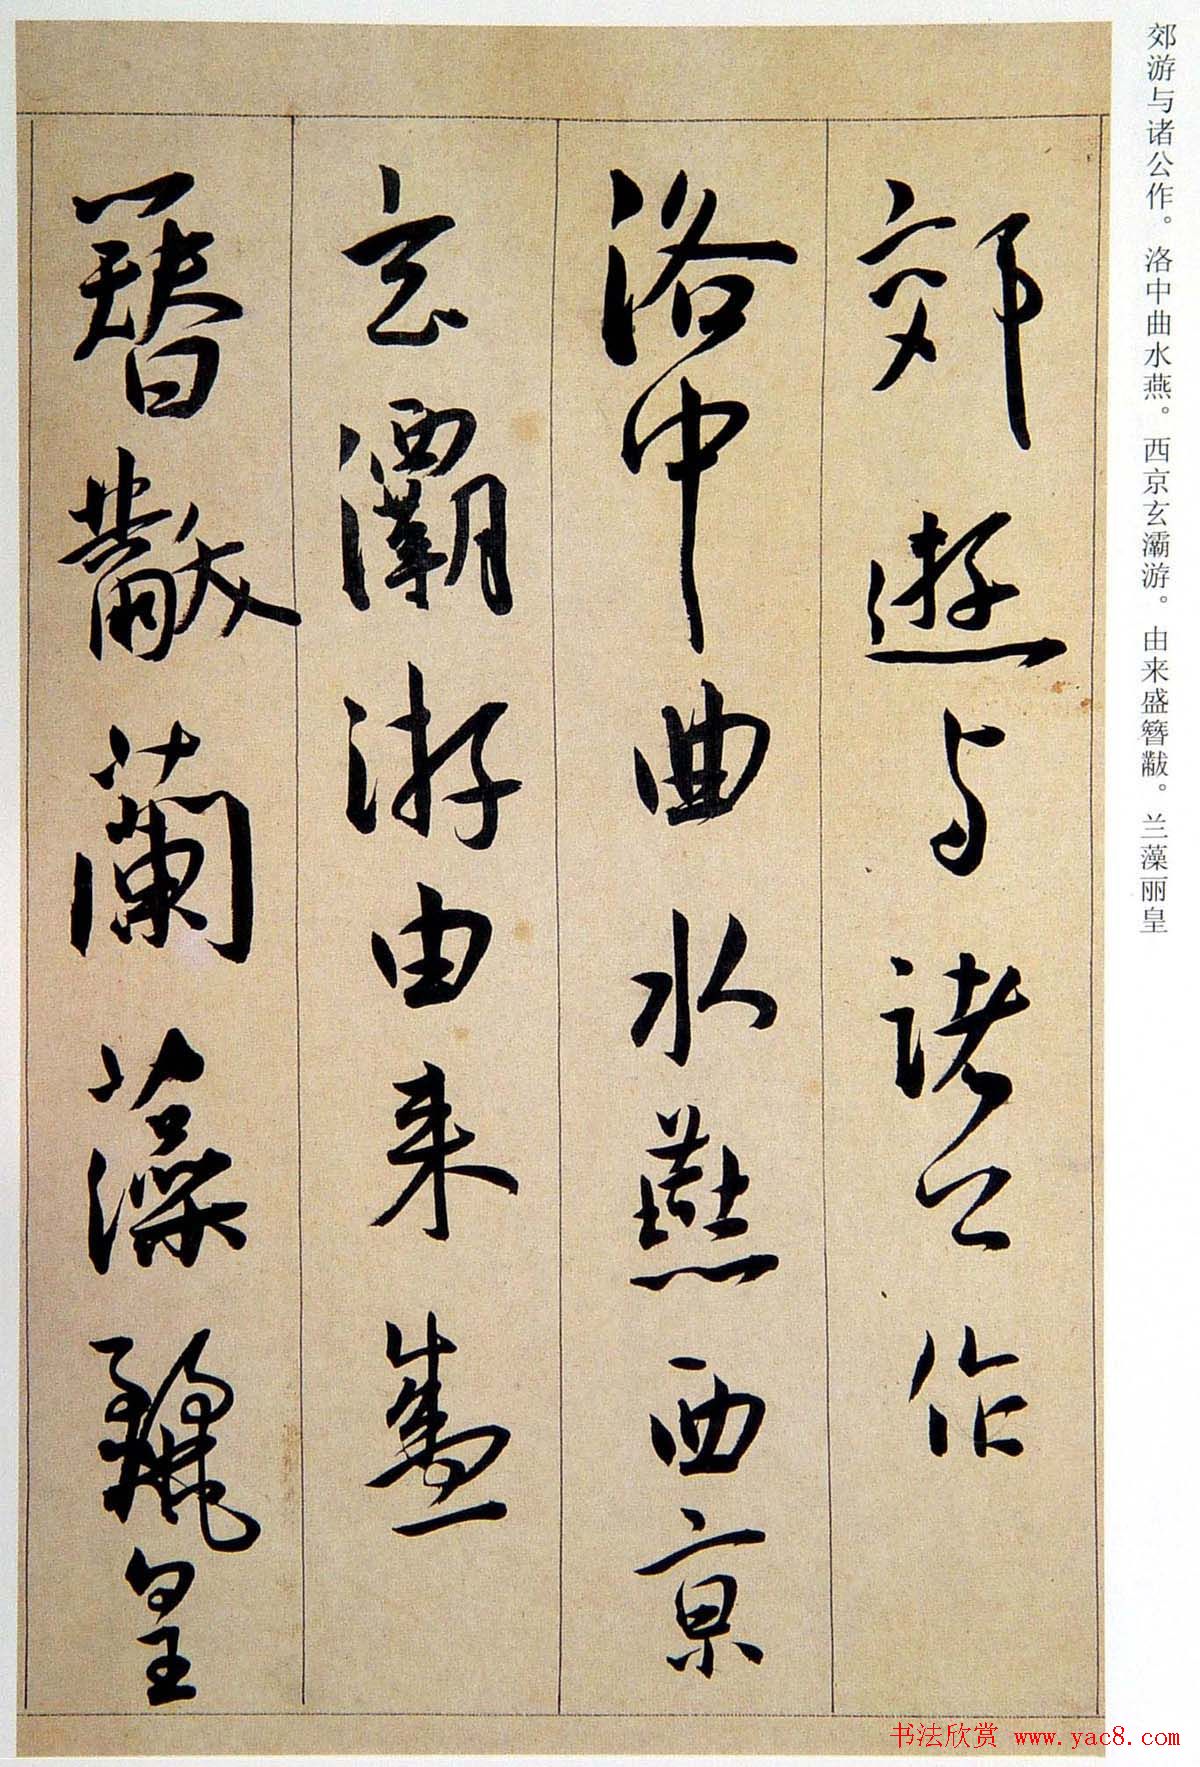 郊游与诸公作。洛中曲水燕。西京玄灞游。由来盛簪黻。兰藻丽皇
郊遊与诸公作
洛中曲水燕西京
玄灞游由来盛
簪黻蘭藻麗皇
书法欣赏 www.yac8.com